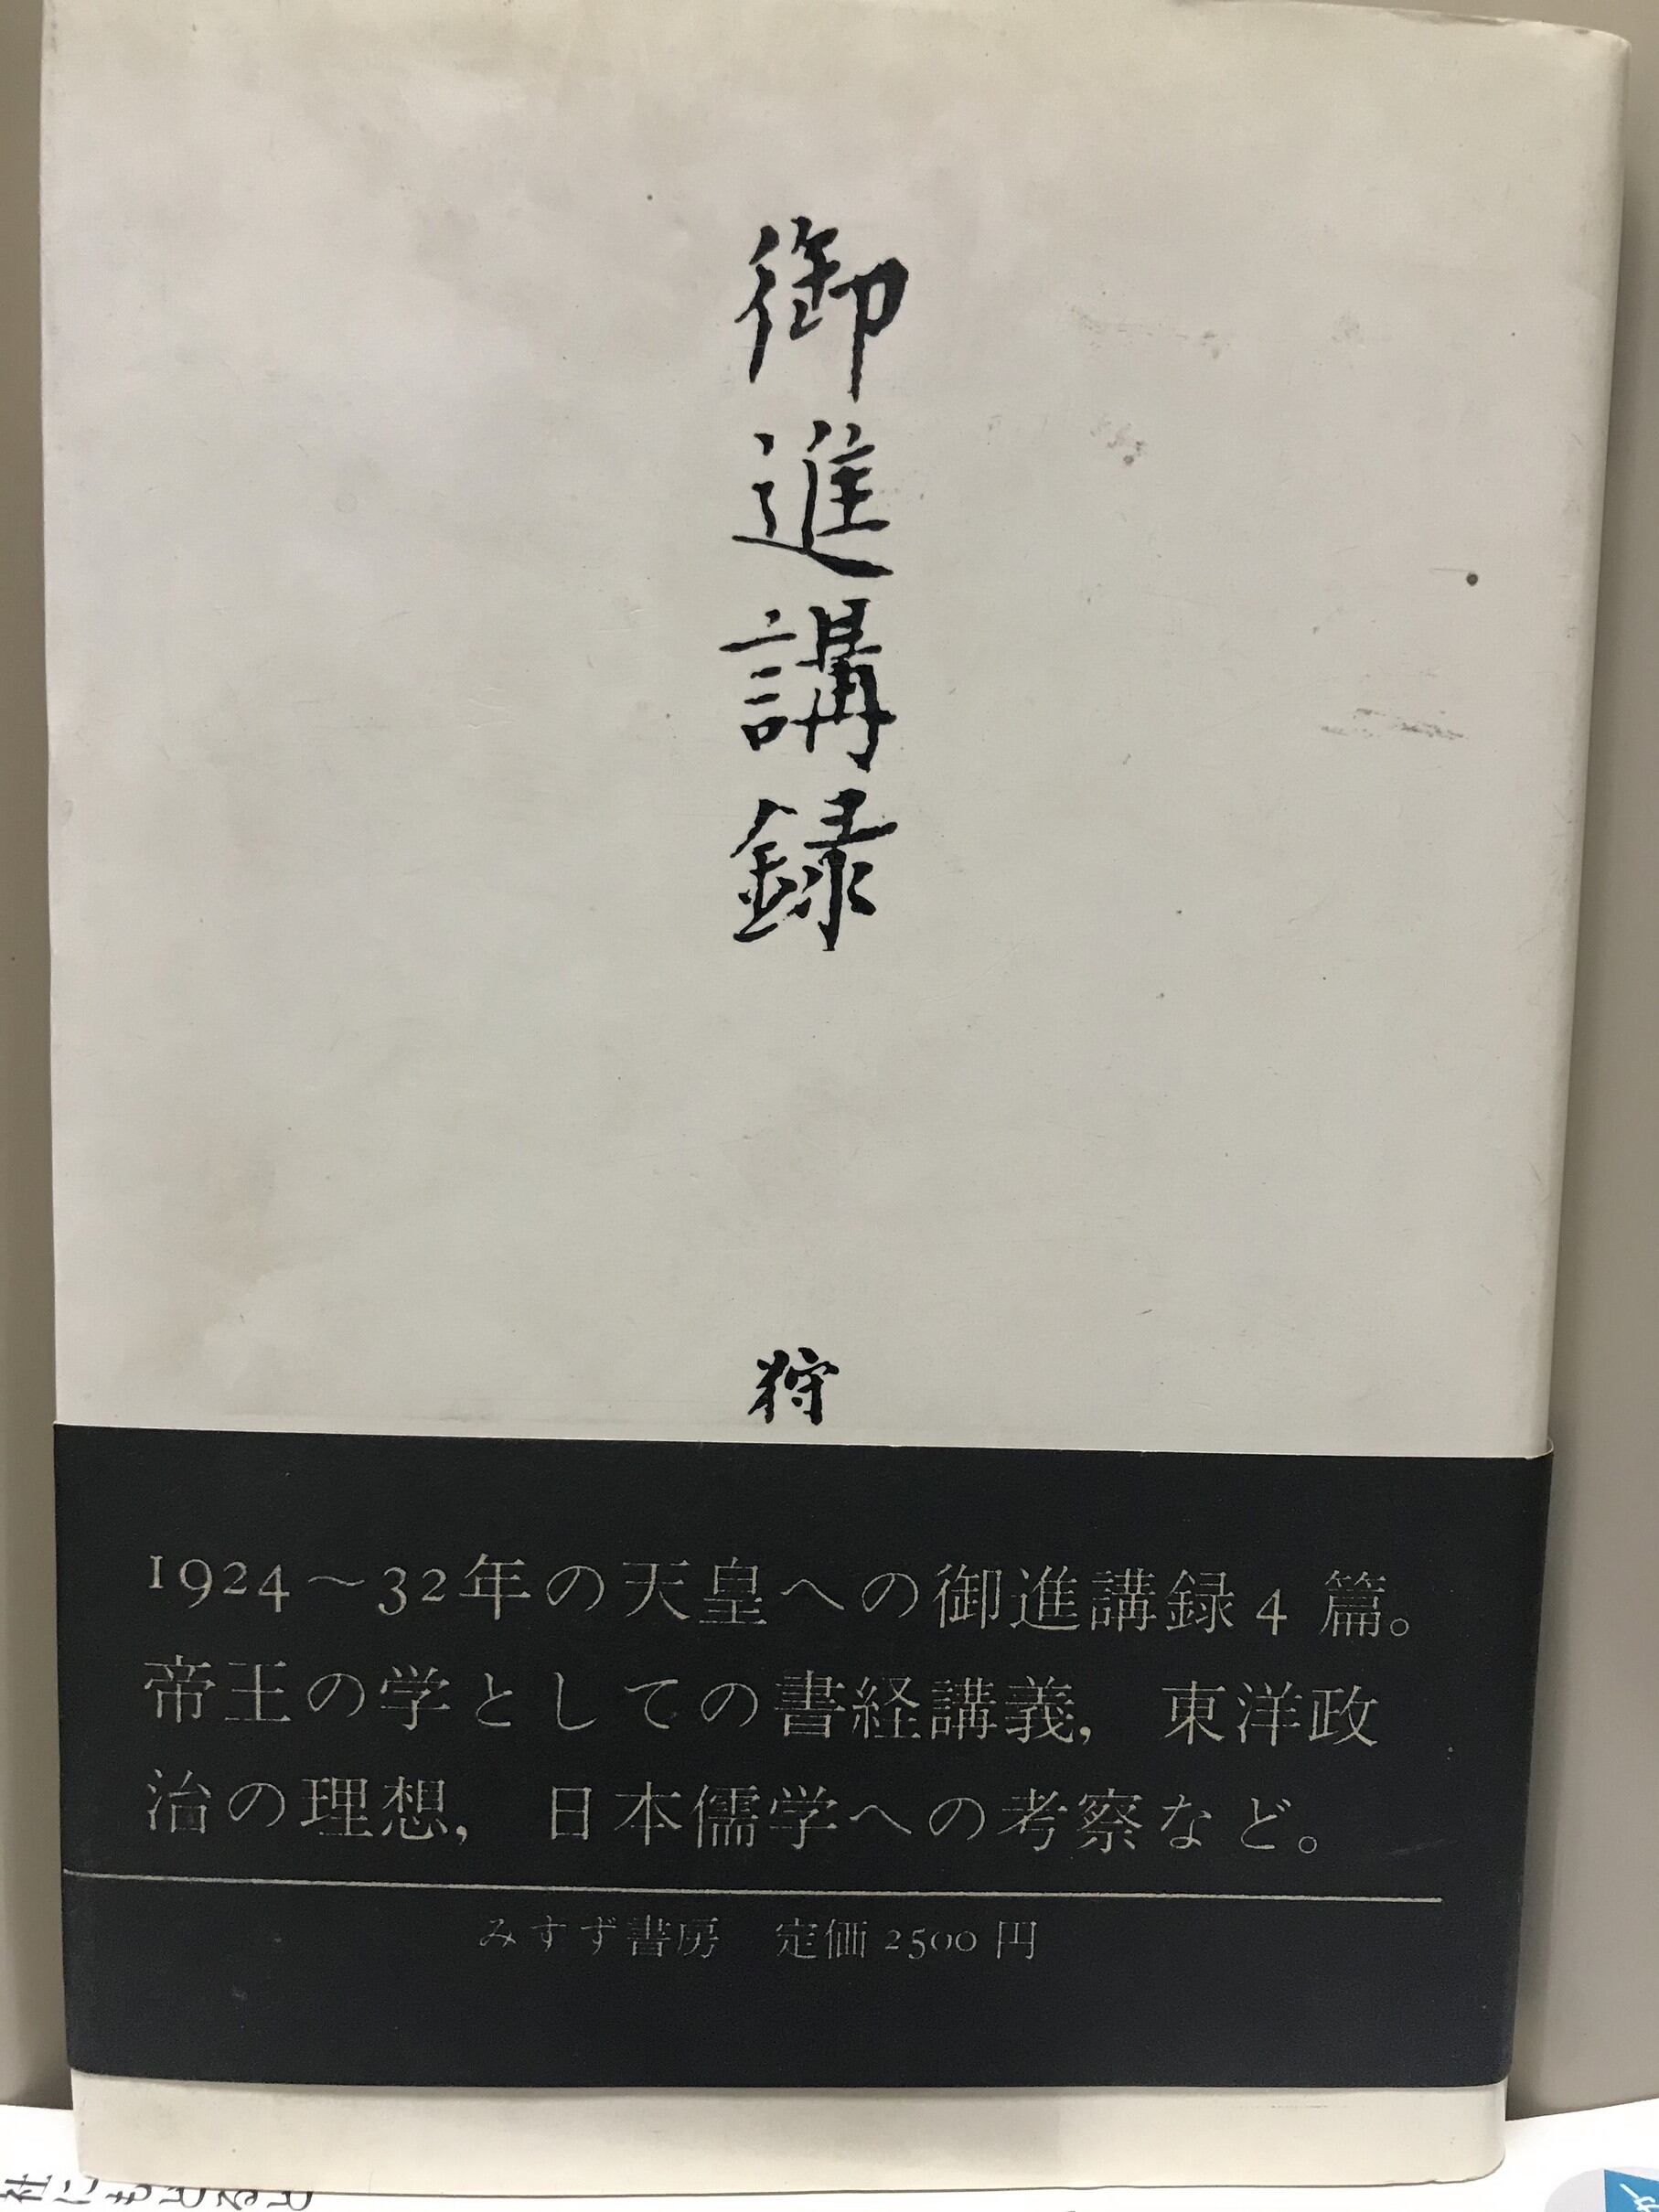 御進講録
狩
1924～32年の天皇への御進講録4篇。
帝王の学としての書経講義，東洋政
治の理想，日本儒学への考察など。
みすず書房　定価2500円
社にもどると